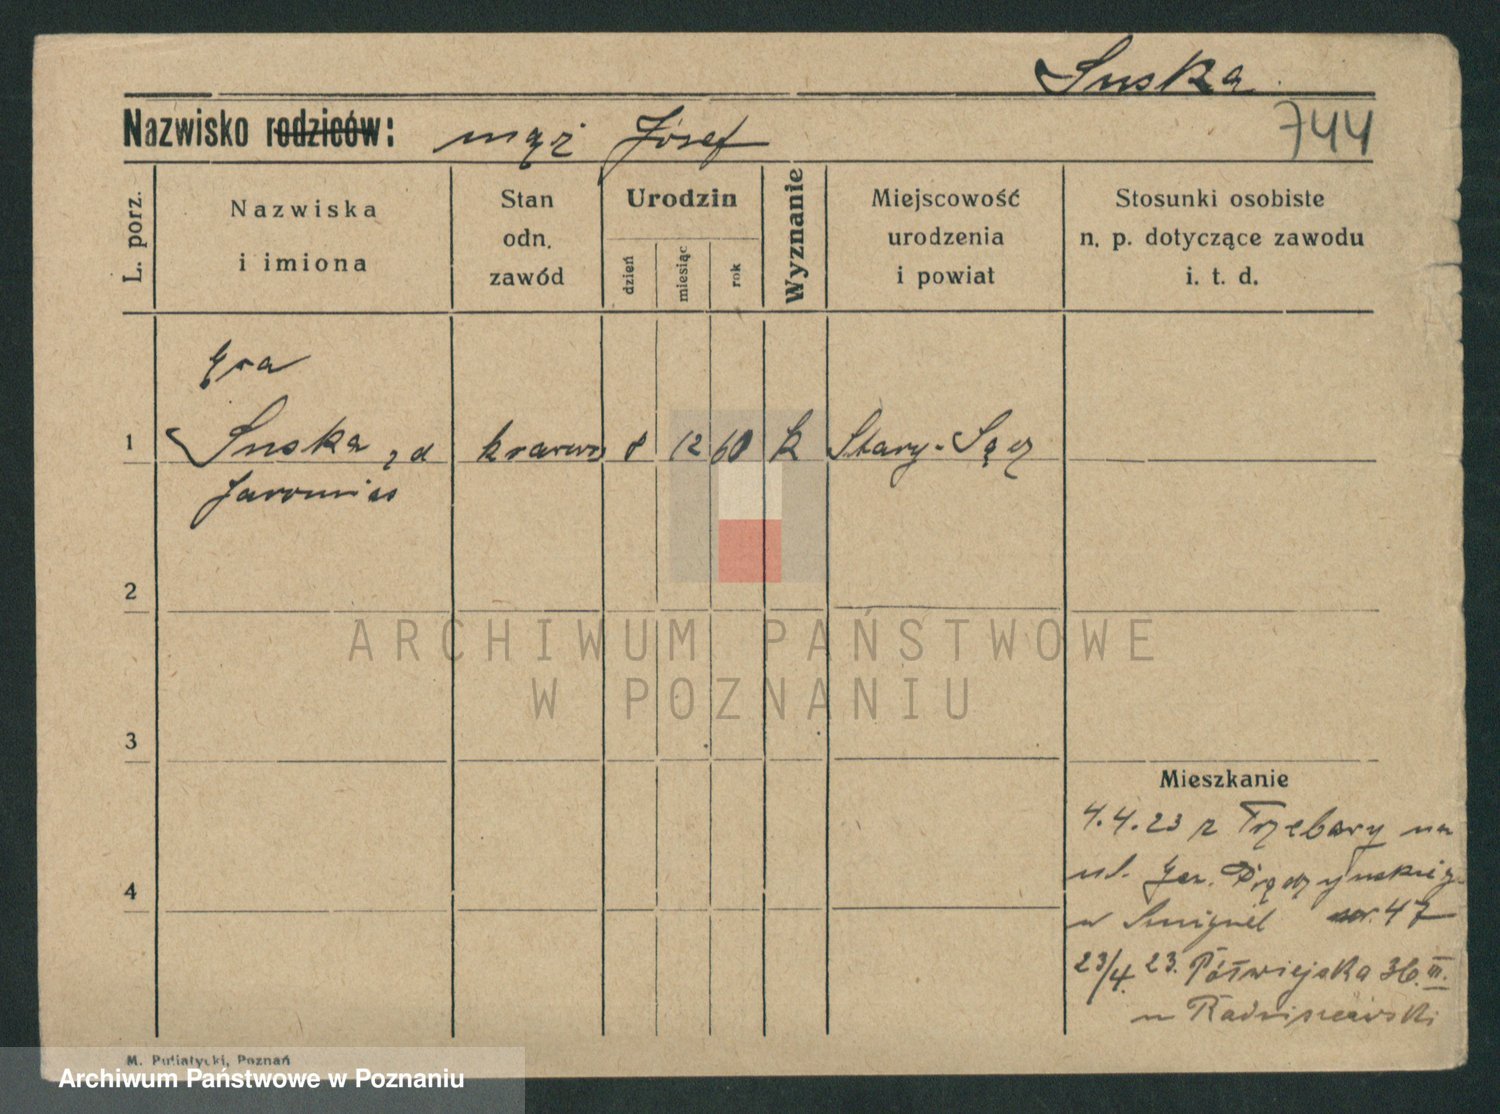 Suska
Nazwisko rodziców: mąż Józef
744
L. porz.
Nazwiska
i imiona
Stan
odn.
zawód
Urodzin
dzień
miesiąc
rok
Wyznanie
Miejscowość
urodzenia
i powiat
Stosunki osobiste
n. p. dotyczące zawodu
i. t. d.
1
Suska z d
8 12 60 k Stary-Sącz
2
3
4
Mieszkanie
4.4.23 z
ul.
w 47
23/4. 23. Półwiejska 36. III.
M. Putiatycki, Poznań
ARCHIWUM PAŃSTWOWE
W POZNANIU
Archiwum Państwowe w Poznaniu